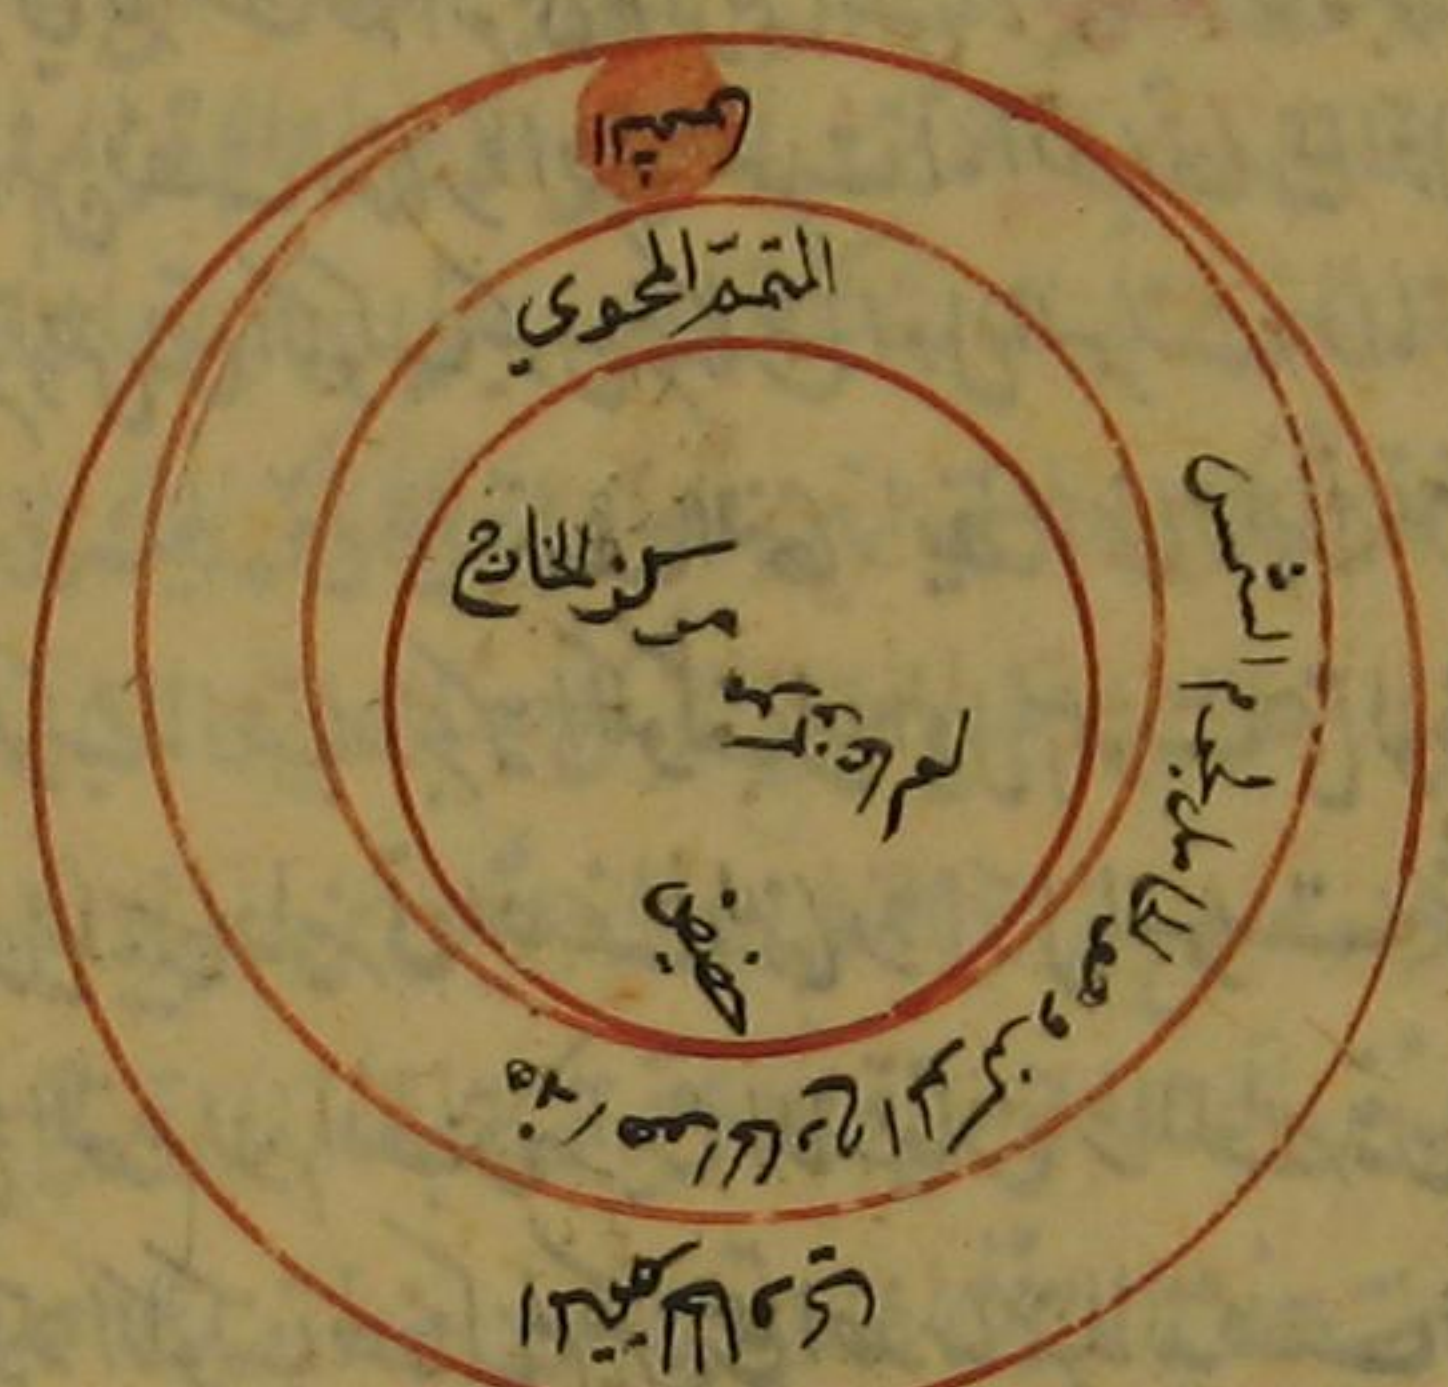 الشمس
المتمم المحوي
مركز الخارج
مركز العالم
حضيض
هذا هو الخارج المركز وهو الحامل لجرم الشمس
المتمم الحاوي